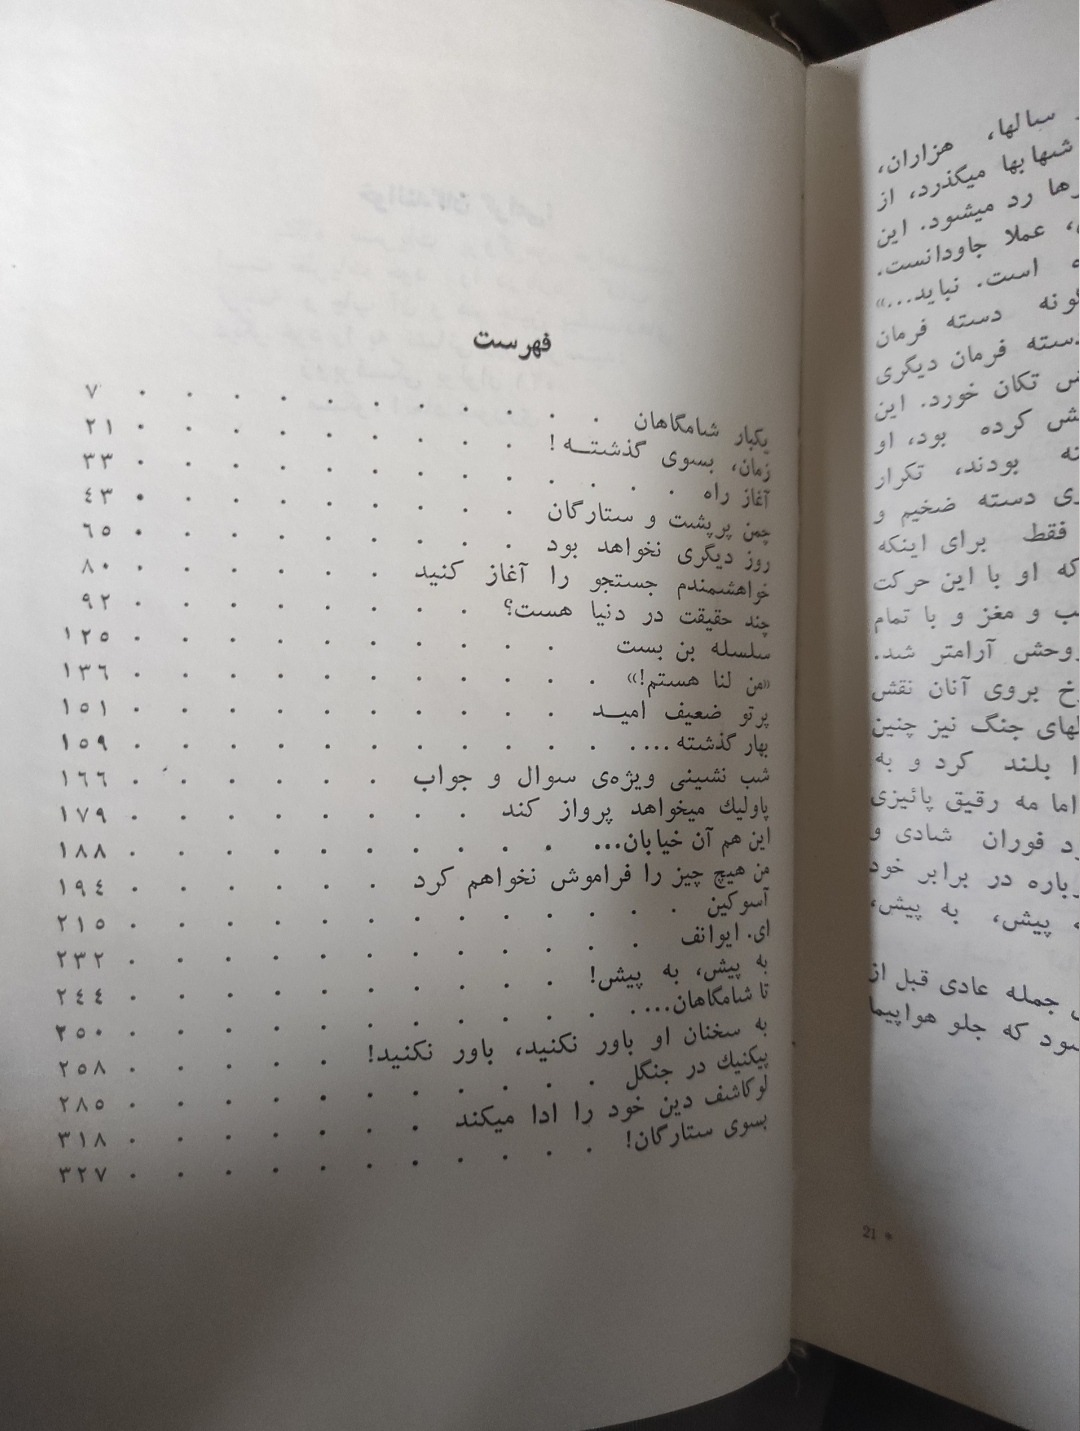 فهرست
یکبار شامگاهان . . . . . . . . . . ۷
زمان، بسوی گذشتـه! . . . . . . . . . ۲۱
آغاز راه . . . . . . . . . . . . ۳۳
چمن پرپشت و ستارگان . . . . . . . . . ٤۳
روز دیگری نخواهد بود . . . . . . . . . ٦٥
خواهشمندم جستجو را آغاز کنید . . . . . . ۸۰
چند حقیقت در دنیا هست؟ . . . . . . . . ۹۲
سلسله بن بست . . . . . . . . . . ۱۲٥
«من لنا هستم!» . . . . . . . . . . . ۱۳٦
پرتو ضعیف امیـد . . . . . . . . . . ۱٥۱
بهار گذشته .... . . . . . . . . . . ۱٥۹
شب نشینی ویژه‌ی سوال و جواب . . . . . . ۱٦٦
پاولیك میخواهد پرواز کند . . . . . . . . ۱۷۹
این هم آن خیابان... . . . . . . . . . . ۱۸۸
من هیچ چیز را فراموش نخواهم کرد . . . . . . ۱۹٤
آسوکین . . . . . . . . . . . . ۲۱٥
ای. ایوانف . . . . . . . . . . . . ۲۳۲
به پیش، به پیش! . . . . . . . . . . ۲٤٤
تا شامگاهان.... . . . . . . . . . . ۲٥۰
به سخنان او باور نکنید، باور نکنید! . . . . . . ۲٥۸
پیکنیك در جنگل . . . . . . . . . . ۲۸٥
لوکاشف دین خود را ادا میکند . . . . . . . ۳۱۸
بسوی ستارگان! . . . . . . . . . . . ۳۲۷
سالها، هزاران،
شهابها میگذرد، از
رد میشود. این
عملا جاودانست.
است. نباید...»
دسته فرمان
دسته فرمان دیگری
تکان خورد. این
کرده بود، او
بودند، تکرار
دسته ضخیم و
فقط برای اینکه
که او با این حرکت
و مغز و با تمام
روحش آرامتر شد.
بروی آنان نقش
جنگ نیز چنین
بلند کرد و به
اما مه رقیق پائیزی
فوران شادی و
در برابر خود
پیش، به پیش،
جمله عادی قبل از
که جلو هواپیما
21 *